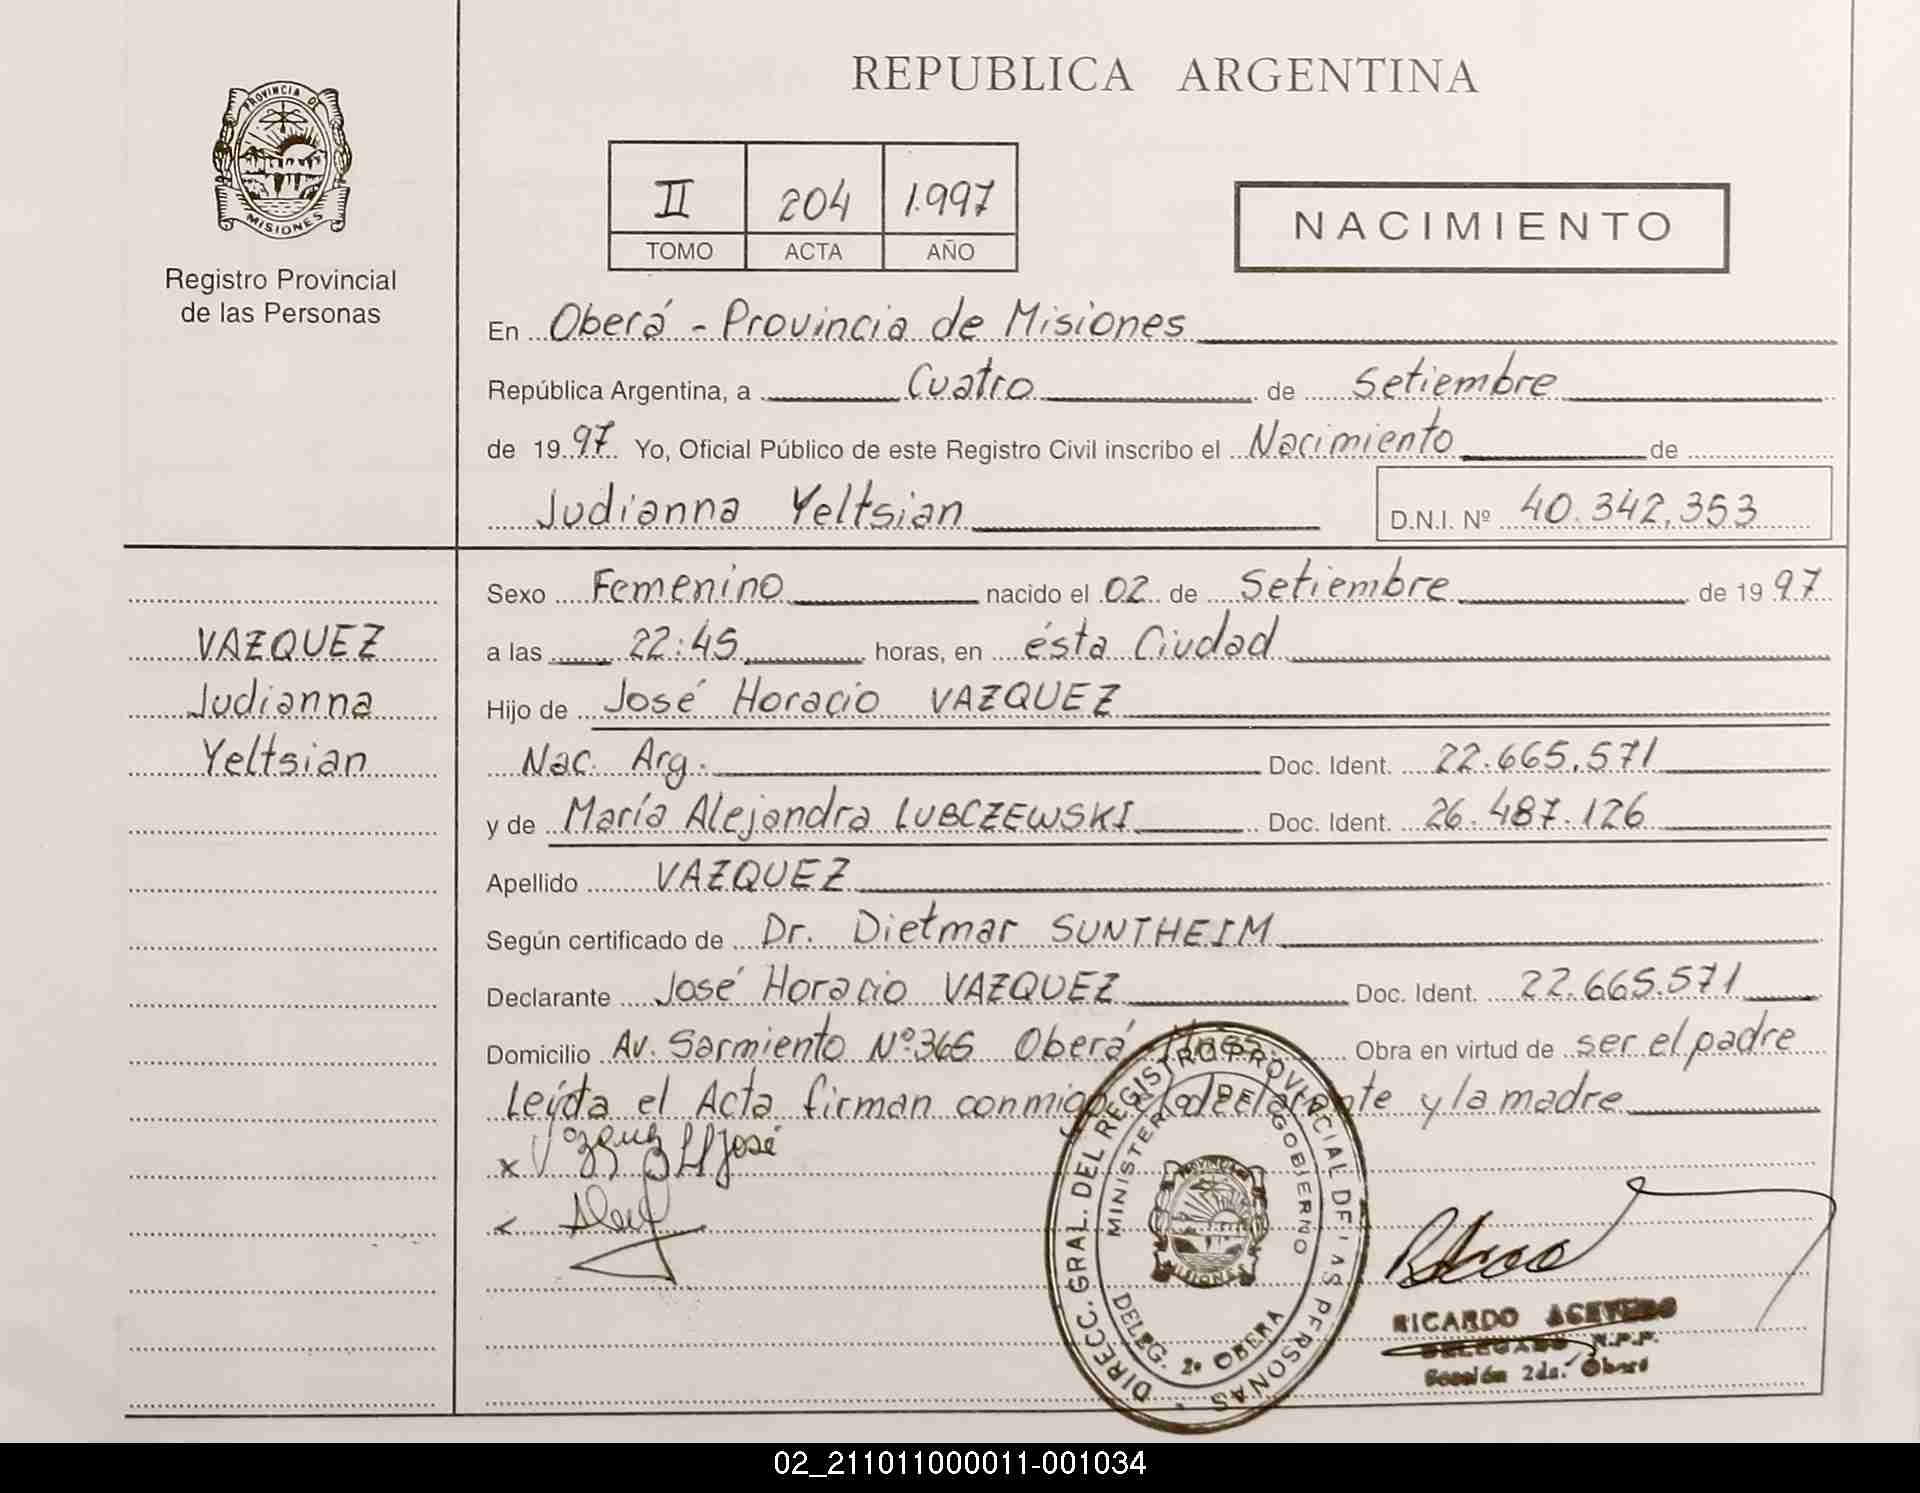 REPUBLICA ARGENTINA
PROVINCIA DE
MISIONES
Registro Provincial
de las Personas
II 204 1.997
TOMO ACTA AÑO
NACIMIENTO
En Oberá - Provincia de Misiones
República Argentina, a Cuatro de Setiembre
de 1997 Yo, Oficial Público de este Registro Civil inscribo el Nacimiento de
Judianna Yeltsian D.N.I. Nº 40.342.353
Sexo Femenino nacido el 02 de Setiembre de 1997
VAZQUEZ
Judianna
Yeltsian
a las 22:45 horas, en ésta Ciudad
Hijo de José Horacio VAZQUEZ
Nac. Arg. Doc. Ident. 22.665.571
y de María Alejandra LUBCZEWSKI Doc. Ident. 26.487.126
Apellido VAZQUEZ
Según certificado de Dr. Dietmar SUNTHEIM
Declarante José Horacio VAZQUEZ Doc. Ident. 22.665.571
Domicilio Av. Sarmiento Nº 365 Oberá Mnes. Obra en virtud de ser el padre
Leída el Acta firman conmigo el declarante y la madre
x Vazquez H José
DIRECC. GRAL. DEL REGISTRO PROVINCIAL DE LAS PERSONAS
MINISTERIO DE GOBIERNO
MISIONES
DELEG. 2º OBERA
RICARDO ACEVEDO
DELEGADO R.P.P.
Sección 2da. Oberá
02_211011000011-001034